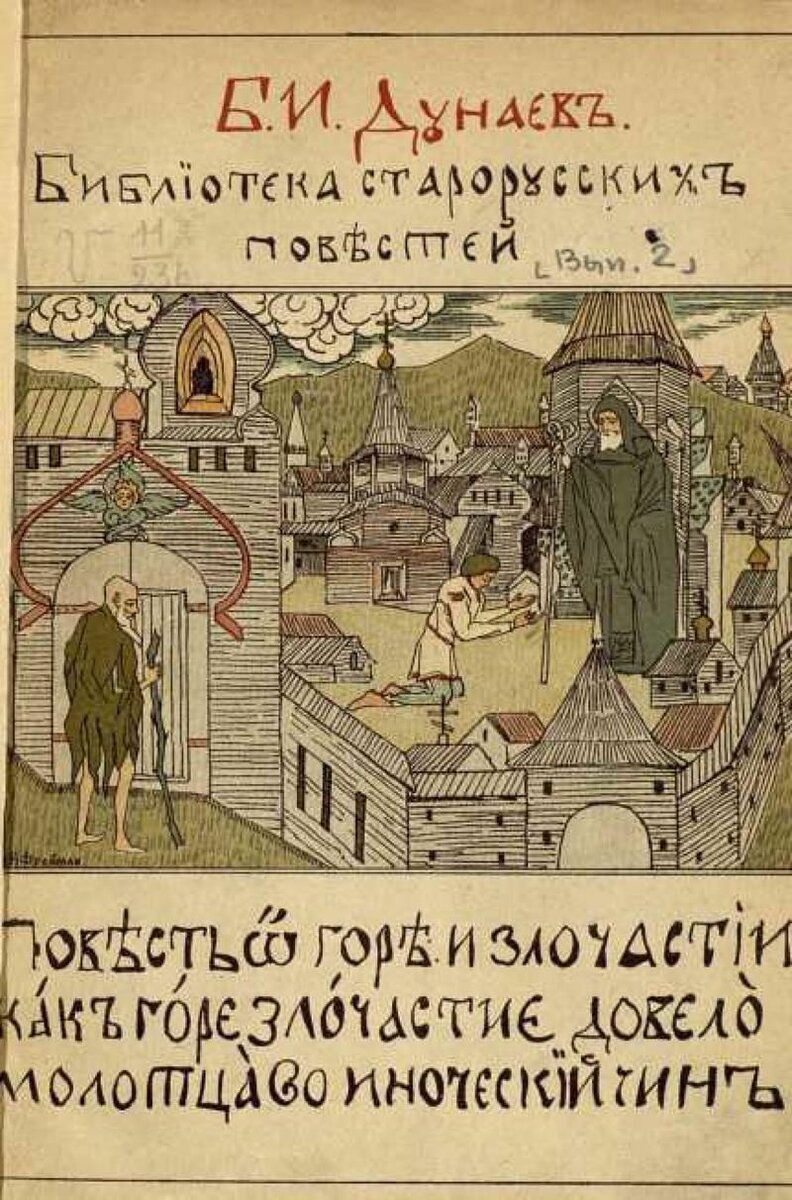 Б.И. Дунаевъ.
Библіотека старорусскихъ
повѣстей
[Вып. 2]
Повѣсть ѿ горѣ и злочастіи
ка́къ го́ре зло́частие довело̀
молотца̀ во иноческїй чинъ